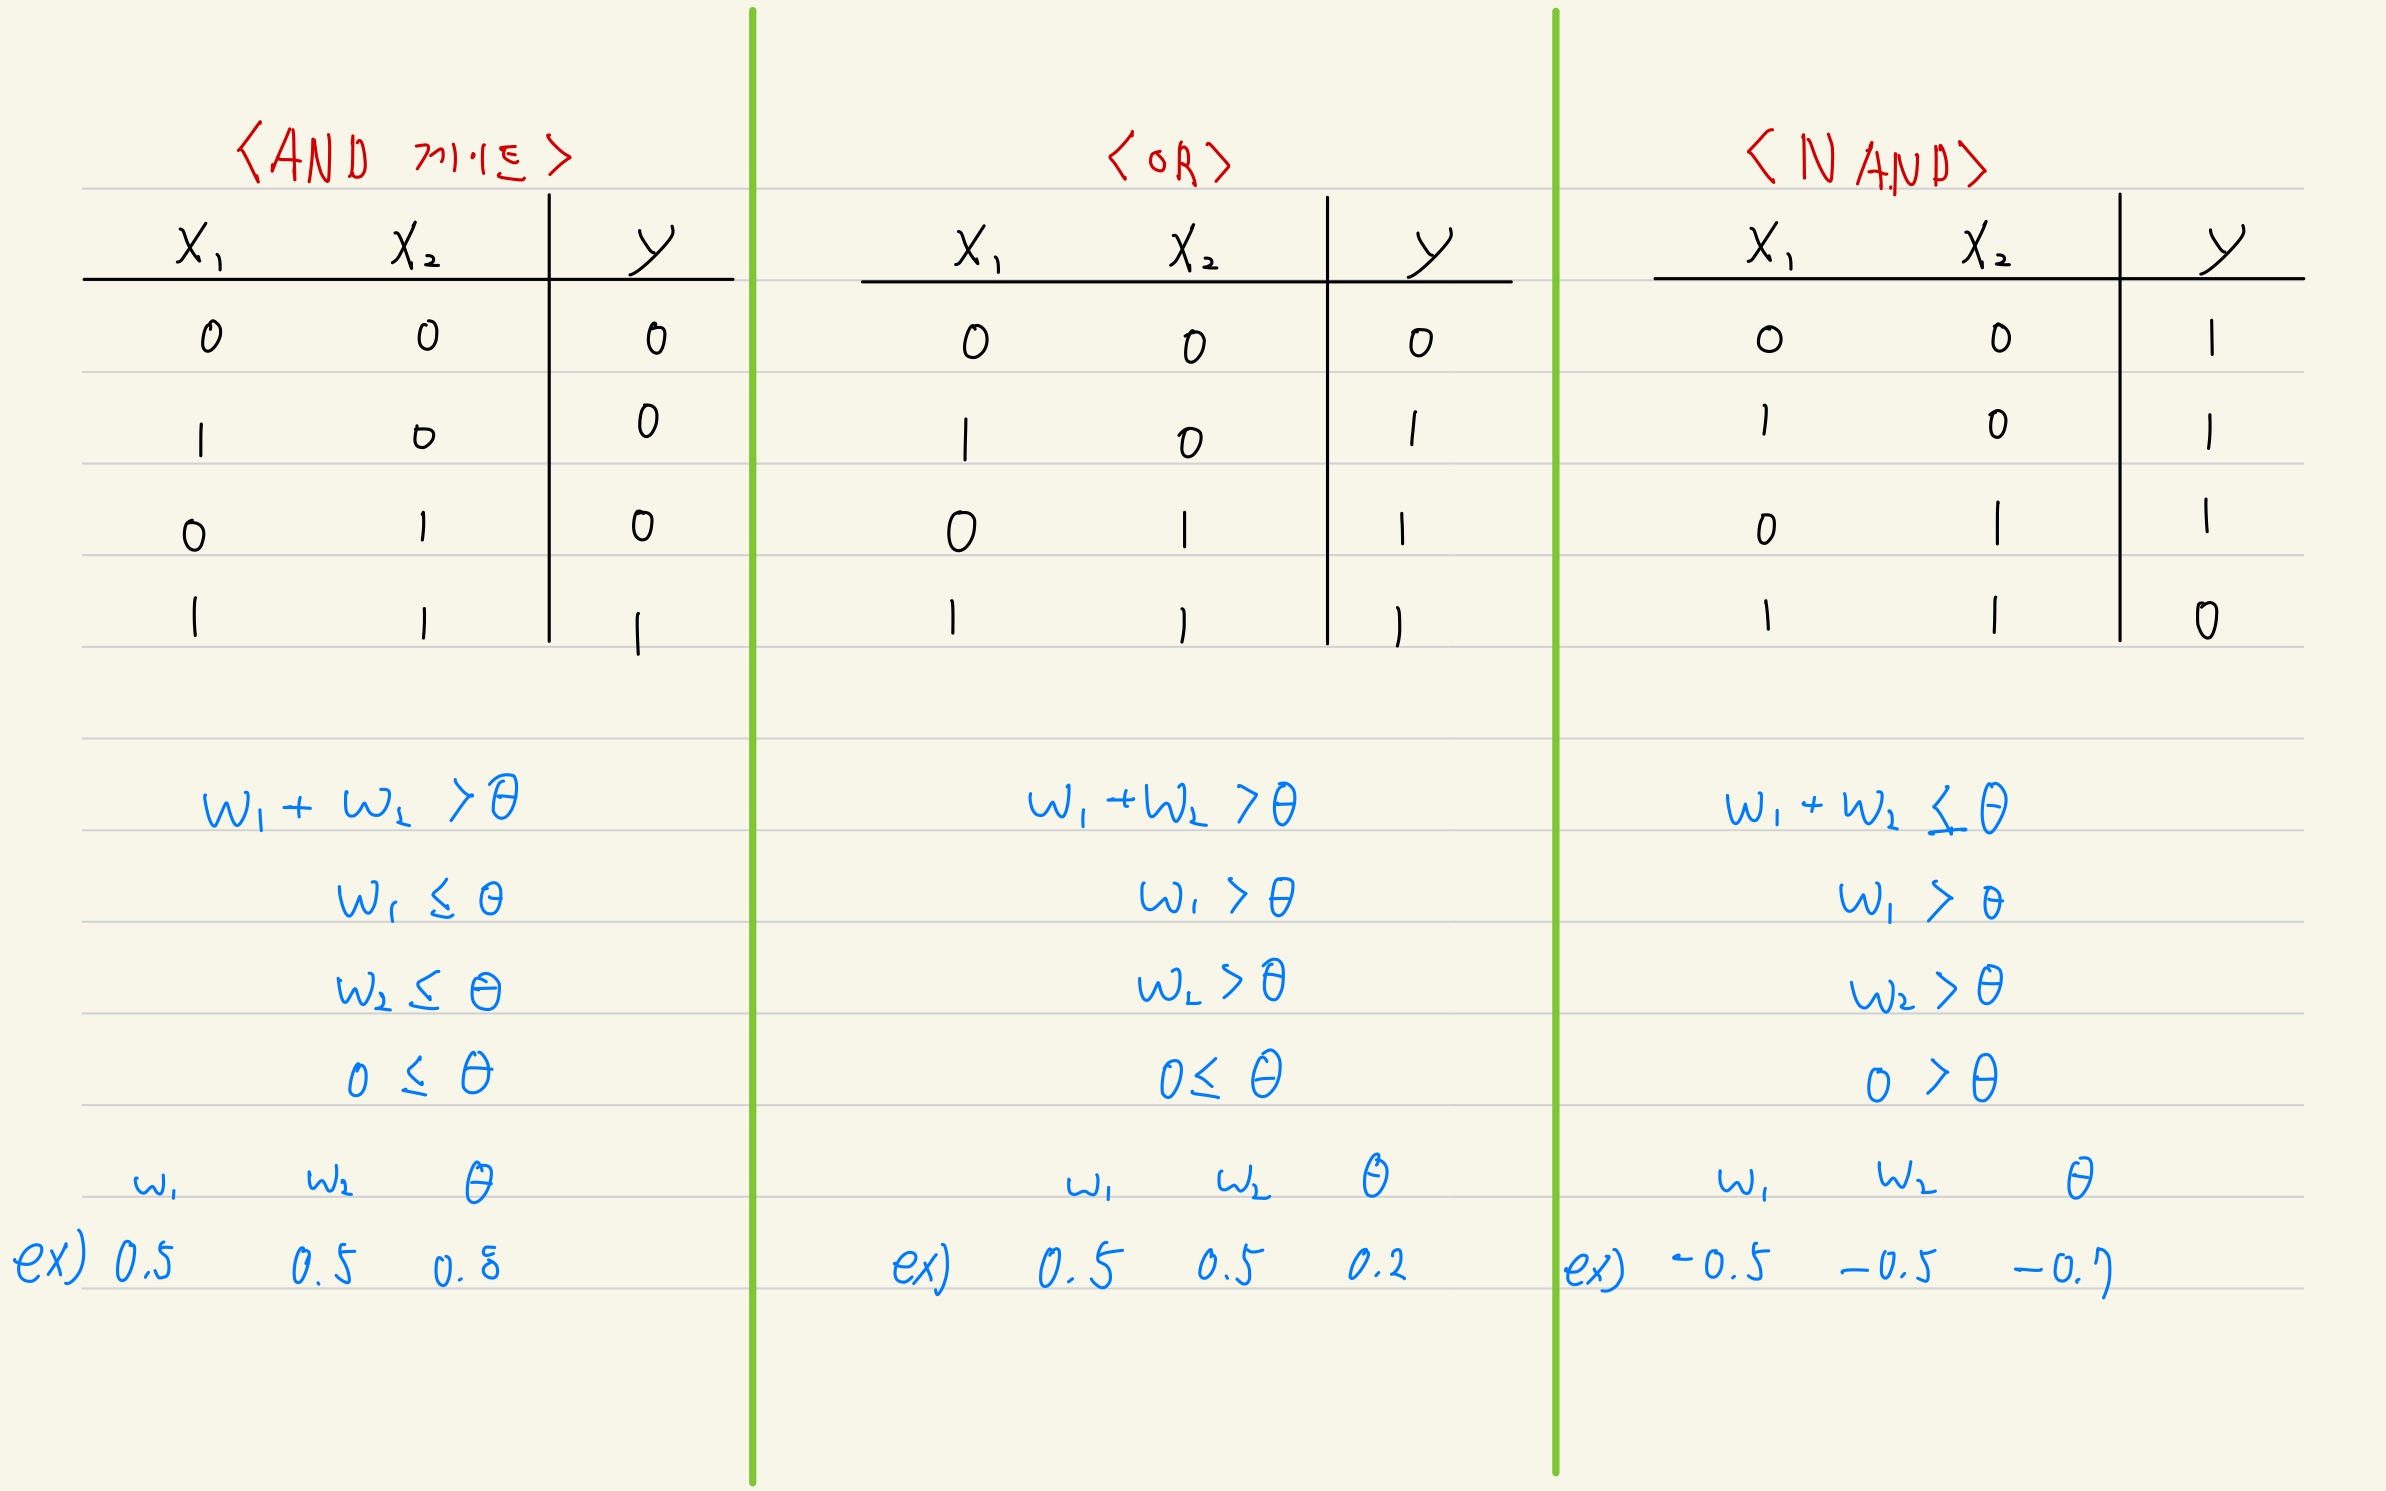 <AND 게이트>
x₁ x₂ y
0 0 0
1 0 0
0 1 0
1 1 1
w₁ + w₂ > θ
w₁ ≤ θ
w₂ ≤ θ
0 ≤ θ
w₁ w₂ θ
ex) 0.5 0.5 0.8
<OR>
x₁ x₂ y
0 0 0
1 0 1
0 1 1
1 1 1
w₁ + w₂ > θ
w₁ > θ
w₂ > θ
0 ≤ θ
w₁ w₂ θ
ex) 0.5 0.5 0.2
<NAND>
x₁ x₂ y
0 0 1
1 0 1
0 1 1
1 1 0
w₁ + w₂ ≤ θ
w₁ > θ
w₂ > θ
0 > θ
w₁ w₂ θ
ex) -0.5 -0.5 -0.7